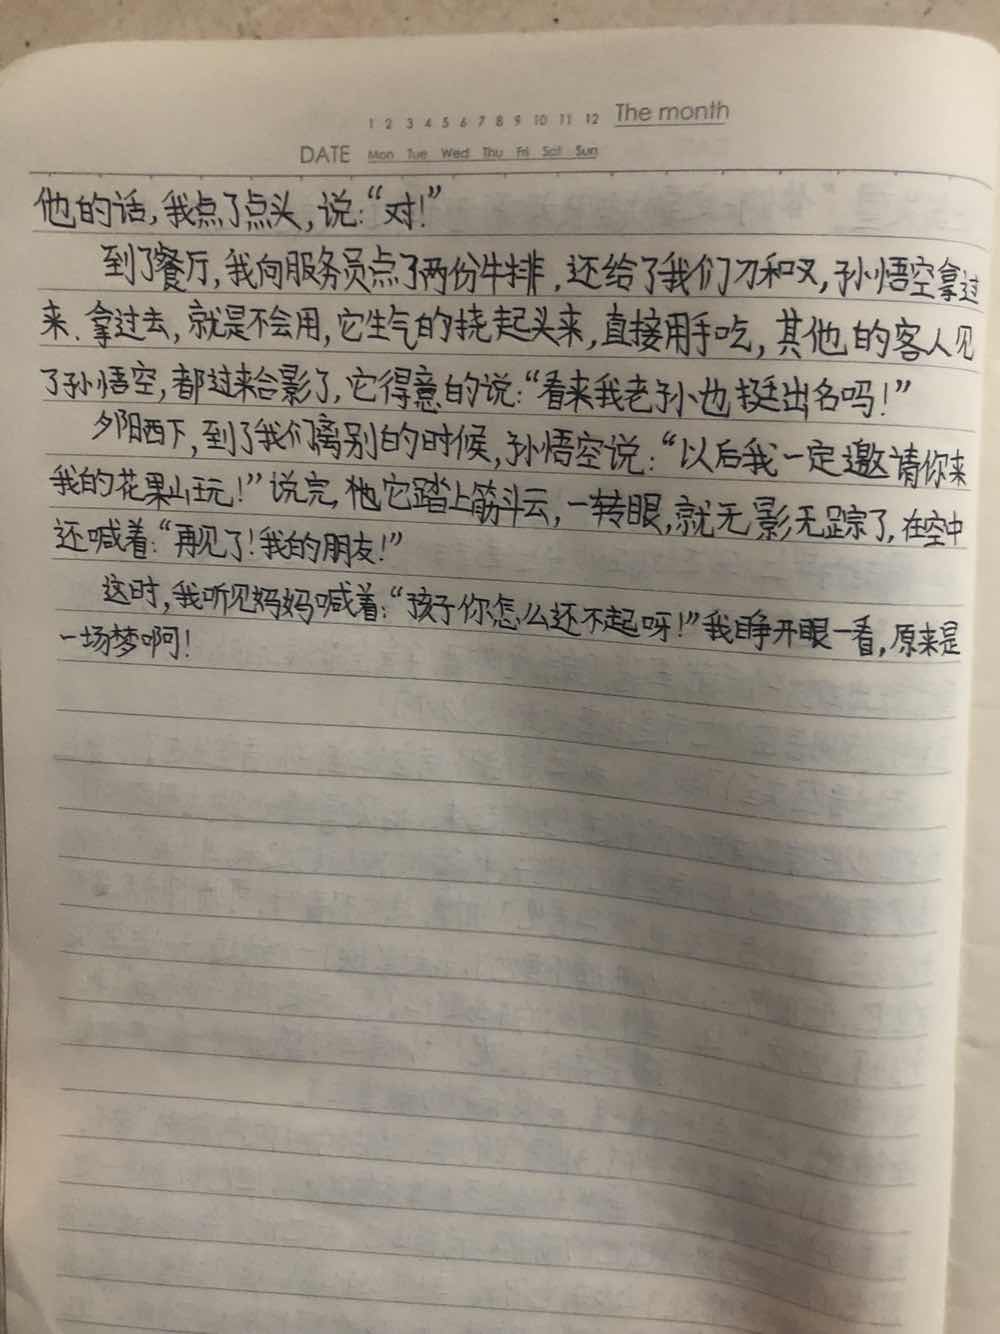 1 2 3 4 5 6 7 8 9 10 11 12 The month
DATE Mon Tue Wed Thu Fri Sat Sun
他的话，我点了点头，说：“对！”
到了餐厅，我向服务员点了两份牛排，还给了我们刀和叉，孙悟空拿过
来、拿过去，就是不会用，它生气的挠起头来，直接用手吃，其他的客人见
了孙悟空，都过来合影了，它得意的说：“看来我老孙也挺出名吗！”
夕阳西下，到了我们离别的时候，孙悟空说：“以后我一定邀请你来
我的花果山玩！”说完，他它踏上筋斗云，一转眼，就无影无踪了，在空中
还喊着：“再见了！我的朋友！”
这时，我听见妈妈喊着：“孩子你怎么还不起呀！”我睁开眼一看，原来是
一场梦啊！